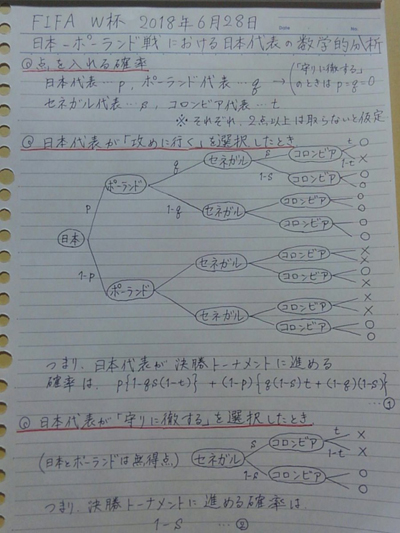 FIFA W杯 2018年6月28日
日本-ポーランド戦における日本代表の数学的分析
◎点を入れる確率
日本代表…p, ポーランド代表…q → (「守りに徹する」のときは p=q=0)
セネガル代表…s, コロンビア代表…t
※それぞれ、2点以上は取らないと仮定
◎日本代表が「攻めに行く」を選択したとき
日本
p
1-p
ポーランド
q
1-q
セネガル
s
1-s
コロンビア
t
1-t
○
×
コロンビア
○
○
セネガル
コロンビア
○
○
コロンビア
○
○
ポーランド
セネガル
コロンビア
×
×
コロンビア
○
×
セネガル
コロンビア
×
×
コロンビア
○
○
つまり、日本代表が決勝トーナメントに進める
確率は、p{1-qs(1-t)} + (1-p){q(1-s)t + (1-q)(1-s)}
…①
◎日本代表が「守りに徹する」を選択したとき
(日本とポーランドは無得点。)
セネガル
s
1-s
コロンビア
t
1-t
×
×
コロンビア
○
○
つまり、決勝トーナメントに進める確率は
1-s …②